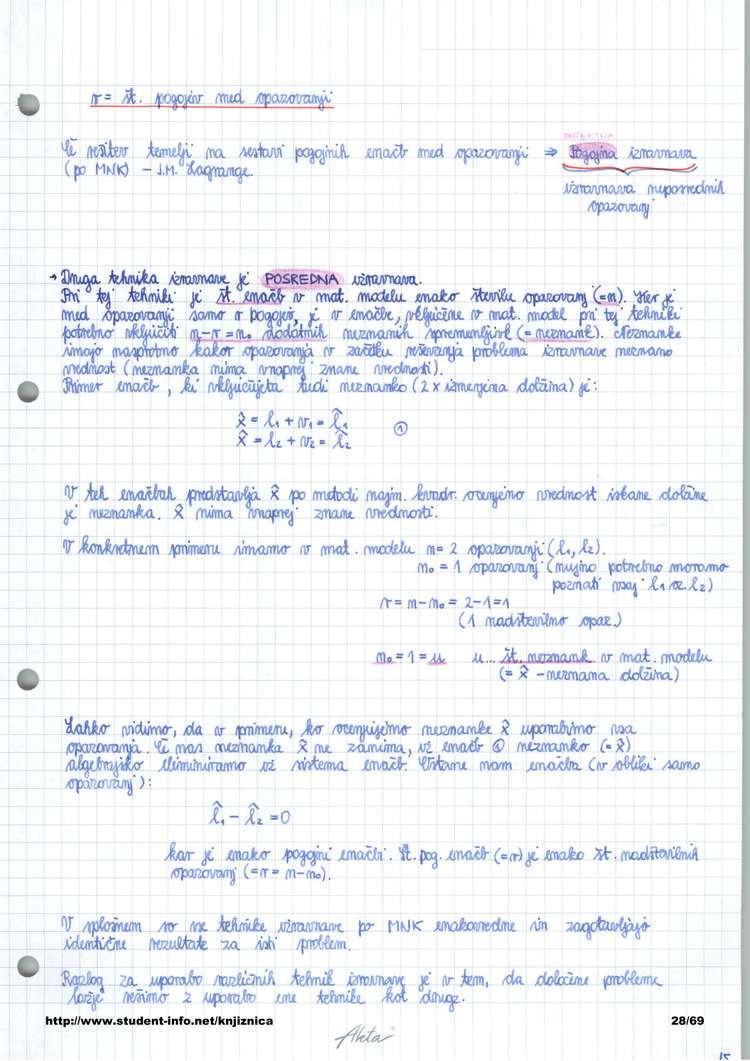 r = št. pogojev med opazovanji
Če rešitev temelji na sestavi pogojnih enačb med opazovanji ⇒ Pogojna izravnava
(po MNK) – J.M. Lagrange.
izravnava neposrednih
opazovanj
→ Druga tehnika izravnave je POSREDNA izravnava.
Pri tej tehniki je št. enačb v mat. modelu enako številu opazovanj (=n). Ker je
med opazovanji samo r pogojev, je v enačbe, vključene v mat. model pri tej tehniki
potrebno vključiti n-r=n₀ dodatnih neznanih spremenljivk (= neznank). Neznanke
imajo nasprotno kakor opazovanja v začetku reševanja problema izravnave neznano
vrednost (neznanka nima vnaprej znane vrednosti).
Primer enačb, ki vključujeta tudi neznanko (2 x izmerjena dolžina) je:
x̂ = l₁ + v₁ = l̂₁
x̂ = l₂ + v₂ = l̂₂ ①
V teh enačbah predstavlja x̂ po metodi najm. kvadr. ocenjeno vrednost iskane dolžine
je neznanka. x̂ nima vnaprej znane vrednosti.
V konkretnem primeru imamo v mat. modelu n=2 opazovanji (l₁, l₂).
n₀ = 1 opazovanj (nujno potrebno moramo
poznati vsaj l₁ oz. l₂)
r = n-n₀ = 2-1=1
(1 nadštevilno opaz.)
n₀ = 1 = u u... št. neznank v mat. modelu
(= x̂ - neznana dolžina)
Lahko vidimo, da v primeru, ko ocenjujemo neznanke x̂ uporabimo vsa
opazovanja. Če nas neznanka x̂ ne zanima, iz enačb ① neznanko (= x̂)
algebrajsko eliminiramo iz sistema enačb. Ostane nam enačba (v obliki samo
opazovanj):
l̂₁ - l̂₂ = 0
kar je enako pogojni enačbi. Št. pog. enačb (=r) je enako št. nadštevilnih
opazovanj (=r = n-n₀).
V splošnem so vse tehnike izravnave po MNK enakovredne in zagotavljajo
identične rezultate za isti problem.
Razlog za uporabo različnih tehnik izravnave je v tem, da določene probleme
lažje rešimo z uporabo ene tehnike kot druge.
http://www.student-info.net/knjiznica 28/69
Akta
15